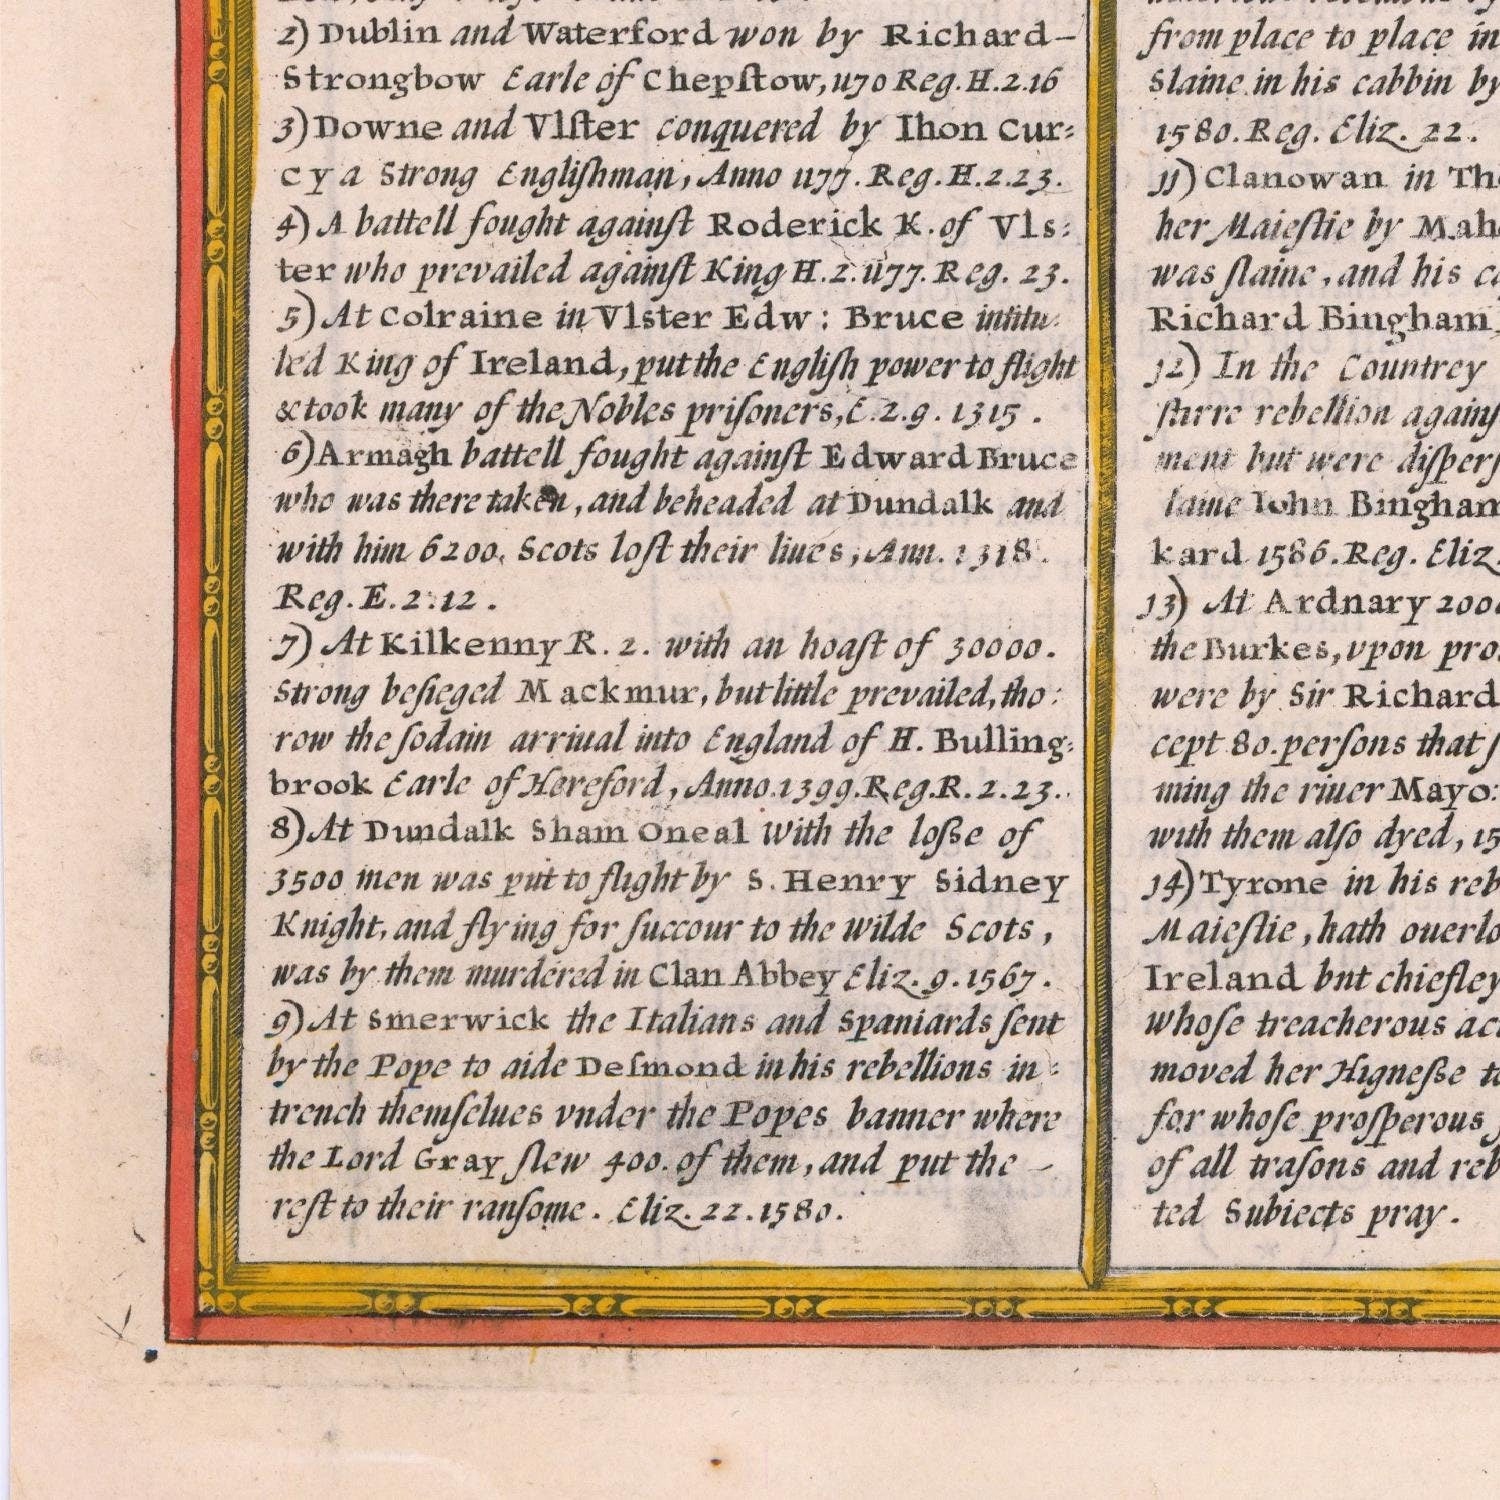 2) Dublin and Waterford won by Richard–
Strongbow Earle of Chepſtow, 1170 Reg. H. 2. 16
3) Downe and Vlſter conquered by Ihon Cur:
cy a Strong Engliſhman, Anno 1177. Reg. H. 2. 23.
4) A battell fought againſt Roderick K. of Vls:
ter who prevailed againſt King H. 2. 1177. Reg. 23.
5) At Colraine in Vlster Edw: Bruce intitu:
led King of Ireland, put the Engliſh power to flight
& took many of the Nobles priſoners, E. 2. 9. 1315.
6) Armagh battell fought againſt Edward Bruce
who was there taken, and beheaded at Dundalk and
with him 6200. Scots loſt their liues, Ann. 1318.
Reg. E. 2. 12.
7) At Kilkenny R. 2. with an hoaſt of 30000.
Strong beſieged Mackmur, but little prevailed, tho:
row the ſodain arriual into England of H. Bulling:
brook Earle of Hereford, Anno. 1399. Reg. R. 2. 23.
8) At Dundalk Sham Oneal with the loſse of
3500 men was put to flight by S. Henry Sidney
Knight, and flying for ſuccour to the wilde Scots,
was by them murdered in Clan Abbey Eliz. 9. 1567.
9) At Smerwick the Italians and Spaniards ſent
by the Pope to aide Deſmond in his rebellions in:
trench themſelues vnder the Popes banner where
the Lord Gray ſlew 400. of them, and put the –
reſt to their ranſome. Eliz. 22. 1580.
from place to place in
Slaine in his cabbin by
1580. Reg. Eliz. 22.
11) Clanowan in Tho
her Maieſtie by Maho
was ſlaine, and his ca
Richard Bingham,
12) In the Countrey
ſturre rebellion againſ
ment but were diſperſ
laine Iohn Bingham
kard 1586. Reg. Eliz.
13) At Ardnary 2000
the Burkes, vpon pro
were by Sir Richard
cept 80. perſons that ſ
ming the riuer Mayo:
with them alſo dyed, 15
14) Tyrone in his reb
Maieſtie, hath ouerlo
Ireland bnt chiefley
whoſe treacherous ac
moved her Higneſse to
for whoſe proſperous
of all traſons and reb
ted Subiects pray.